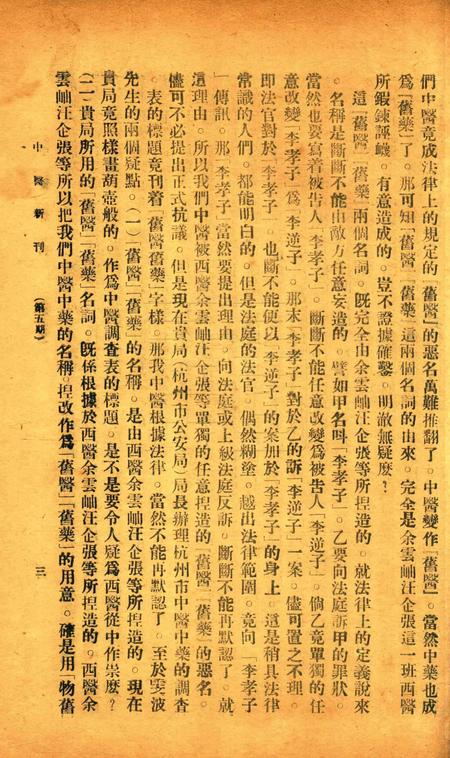 們中醫竟成法律上的規定的「舊醫」的惡名萬難推翻了。中醫變作「舊醫」。當然中藥也成
爲「舊藥」了。那可知「舊醫」「舊藥」這兩個名詞的由來。完全是余雲岫汪企張這一班西醫
所鍛鍊誣衊。有意造成的。豈不證據確鑿。明敵無疑麼。
這「舊醫」「舊藥」兩個名詞。旣完全由余雲岫汪企張等所捏造的。就法律上的定義說來
。名稱是斷斷不能由敵方任意妄造的。譬如甲名叫「李孝子」。乙要向法庭訴甲的罪狀。
當然也要寫着被告人「李孝子」。斷斷不能任意改變爲被告人「李逆子」。倘乙竟單獨的任
意改變「李孝子」爲「李逆子」。那末「李孝子」對於乙的訴「李逆子」一案。儘可置之不理。
即法官對於「李孝子」。也斷不能便以「李逆子」的案加於「李孝子」的身上。這是稍具法律
常識的人們。都能明白的。但是法庭的法官。偶然糊塗。越出法律範圍。竟向「李孝子
」傳訊。那「李孝子」當然要提出理由。向法庭或上級法庭反訴。斷斷不能再默認了。就
這理由。所以我們中醫被西醫余雲岫汪企張等單獨的任意捏造的「舊醫」「舊藥」的惡名。
儘可不必提出正式抗議。但是現在貴局(杭州市公安局)局長辦理杭州市中醫中藥的調查
。表的標題竟刊着「舊醫舊藥」字樣。那我中醫根據法律。當然不能再默認了。至於雯波
先生的兩個疑點。(一)「舊醫」「舊藥」的名稱。是由西醫余雲岫汪企張等所捏造的。現在
貴局竟照樣畫葫壺般的。作爲中醫調查表的標題。是不是要令人疑爲西醫從中作祟麼?
(二)貴局所用的「舊醫」「舊藥」名詞。旣係根據於西醫余雲岫汪企張等所捏造的。西醫余
雲岫汪企張等所以把我們中醫中藥的名稱。捏改作爲「舊醫」「舊藥」的用意。確是用「物舊
中醫新刊 (第五期) 三